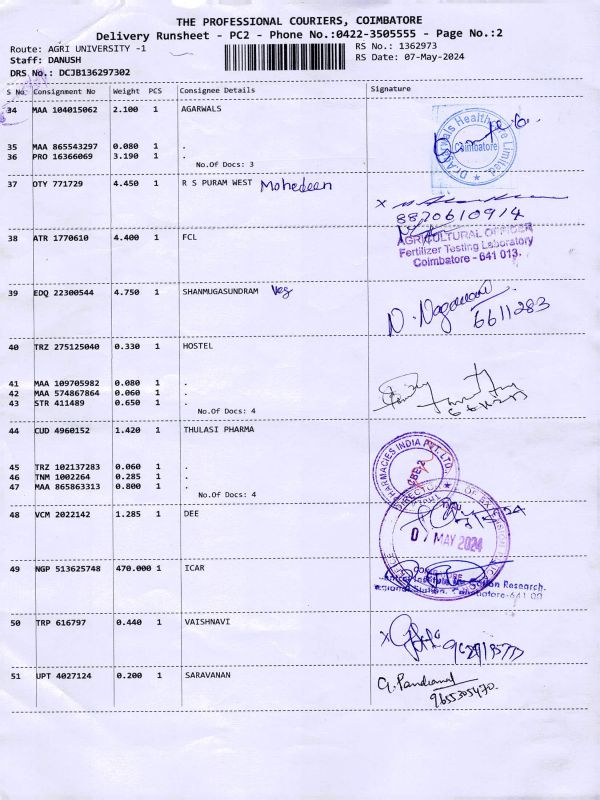 THE PROFESSIONAL COURIERS, COIMBATORE
Delivery Runsheet - PC2 - Phone No.:0422-3505555 - Page No.:2
Route: AGRI UNIVERSITY -1
RS No.: 1362973
Staff: DANUSH
RS Date: 07-May-2024
DRS No.: DCJB136297302
S No. Consignment No Weight PCS Consignee Details Signature
34 MAA 104015062 2.100 1 AGARWALS
Dr.Agarwals Healthcare Limited
Coimbatore
35 MAA 865543297 0.080 1 .
36 PRO 16366069 3.190 1 .
No.Of Docs: 3
37 DTY 771729 4.450 1 R S PURAM WEST Mohedeen
x
8870610914
38 ATR 1770610 4.400 1 FCL
AGRICULTURAL OFFICER
Fertilizer Testing Laboratory
Coimbatore - 641 013.
39 EDQ 22300544 4.750 1 SHANMUGASUNDRAM
6611283
40 TRZ 275125040 0.330 1 HOSTEL
41 MAA 109705982 0.080 1 .
42 MAA 574867864 0.060 1 .
43 STR 411489 0.650 1 .
No.Of Docs: 4
44 CUD 4960152 1.420 1 THULASI PHARMA
PHARMACIES INDIA PVT. LTD.
CBE-2
45 TRZ 102137283 0.060 1 .
46 TNM 1002264 0.285 1 .
47 MAA 865863313 0.800 1 .
No.Of Docs: 4
48 VCM 2022142 1.285 1 DEE
07 MAY 2024
49 NGP 513625748 470.000 1 ICAR
Central Institute for Cotton Research.
Regional Station, Coimbatore-641 00
50 TRP 616797 0.440 1 VAISHNAVI
x
51 UPT 4027124 0.200 1 SARAVANAN
9655305470.